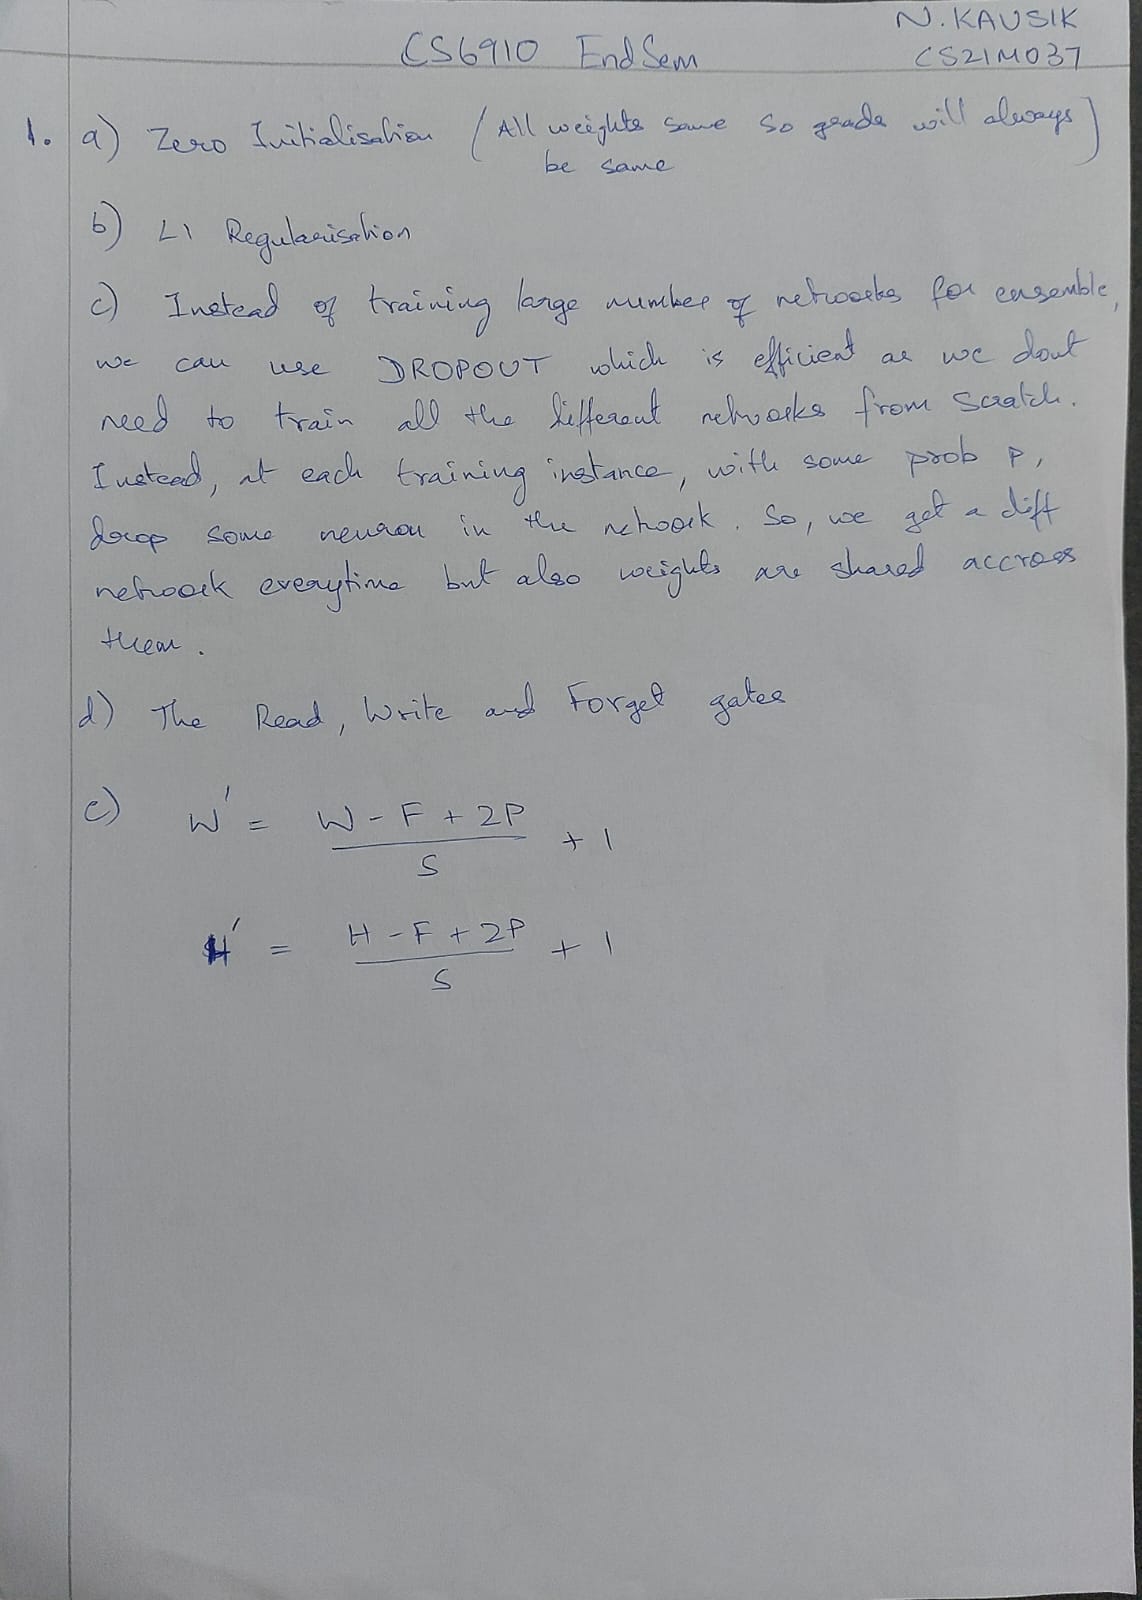 N. KAUSIK
CS6910 End Sem
CS21M037
1. a) Zero Initialisation (All weights same so grads will always
be same)
b) L1 Regularisation
c) Instead of training large number of networks for ensemble,
we can use DROPOUT which is efficient as we dont
need to train all the different networks from scratch.
Instead, at each training instance, with some prob p,
drop some neuron in the network. So, we get a diff
network everytime but also weights are shared accross
them.
d) The Read, Write and Forget gates
e) W' = (W - F + 2P)/S + 1
H' = (H - F + 2P)/S + 1